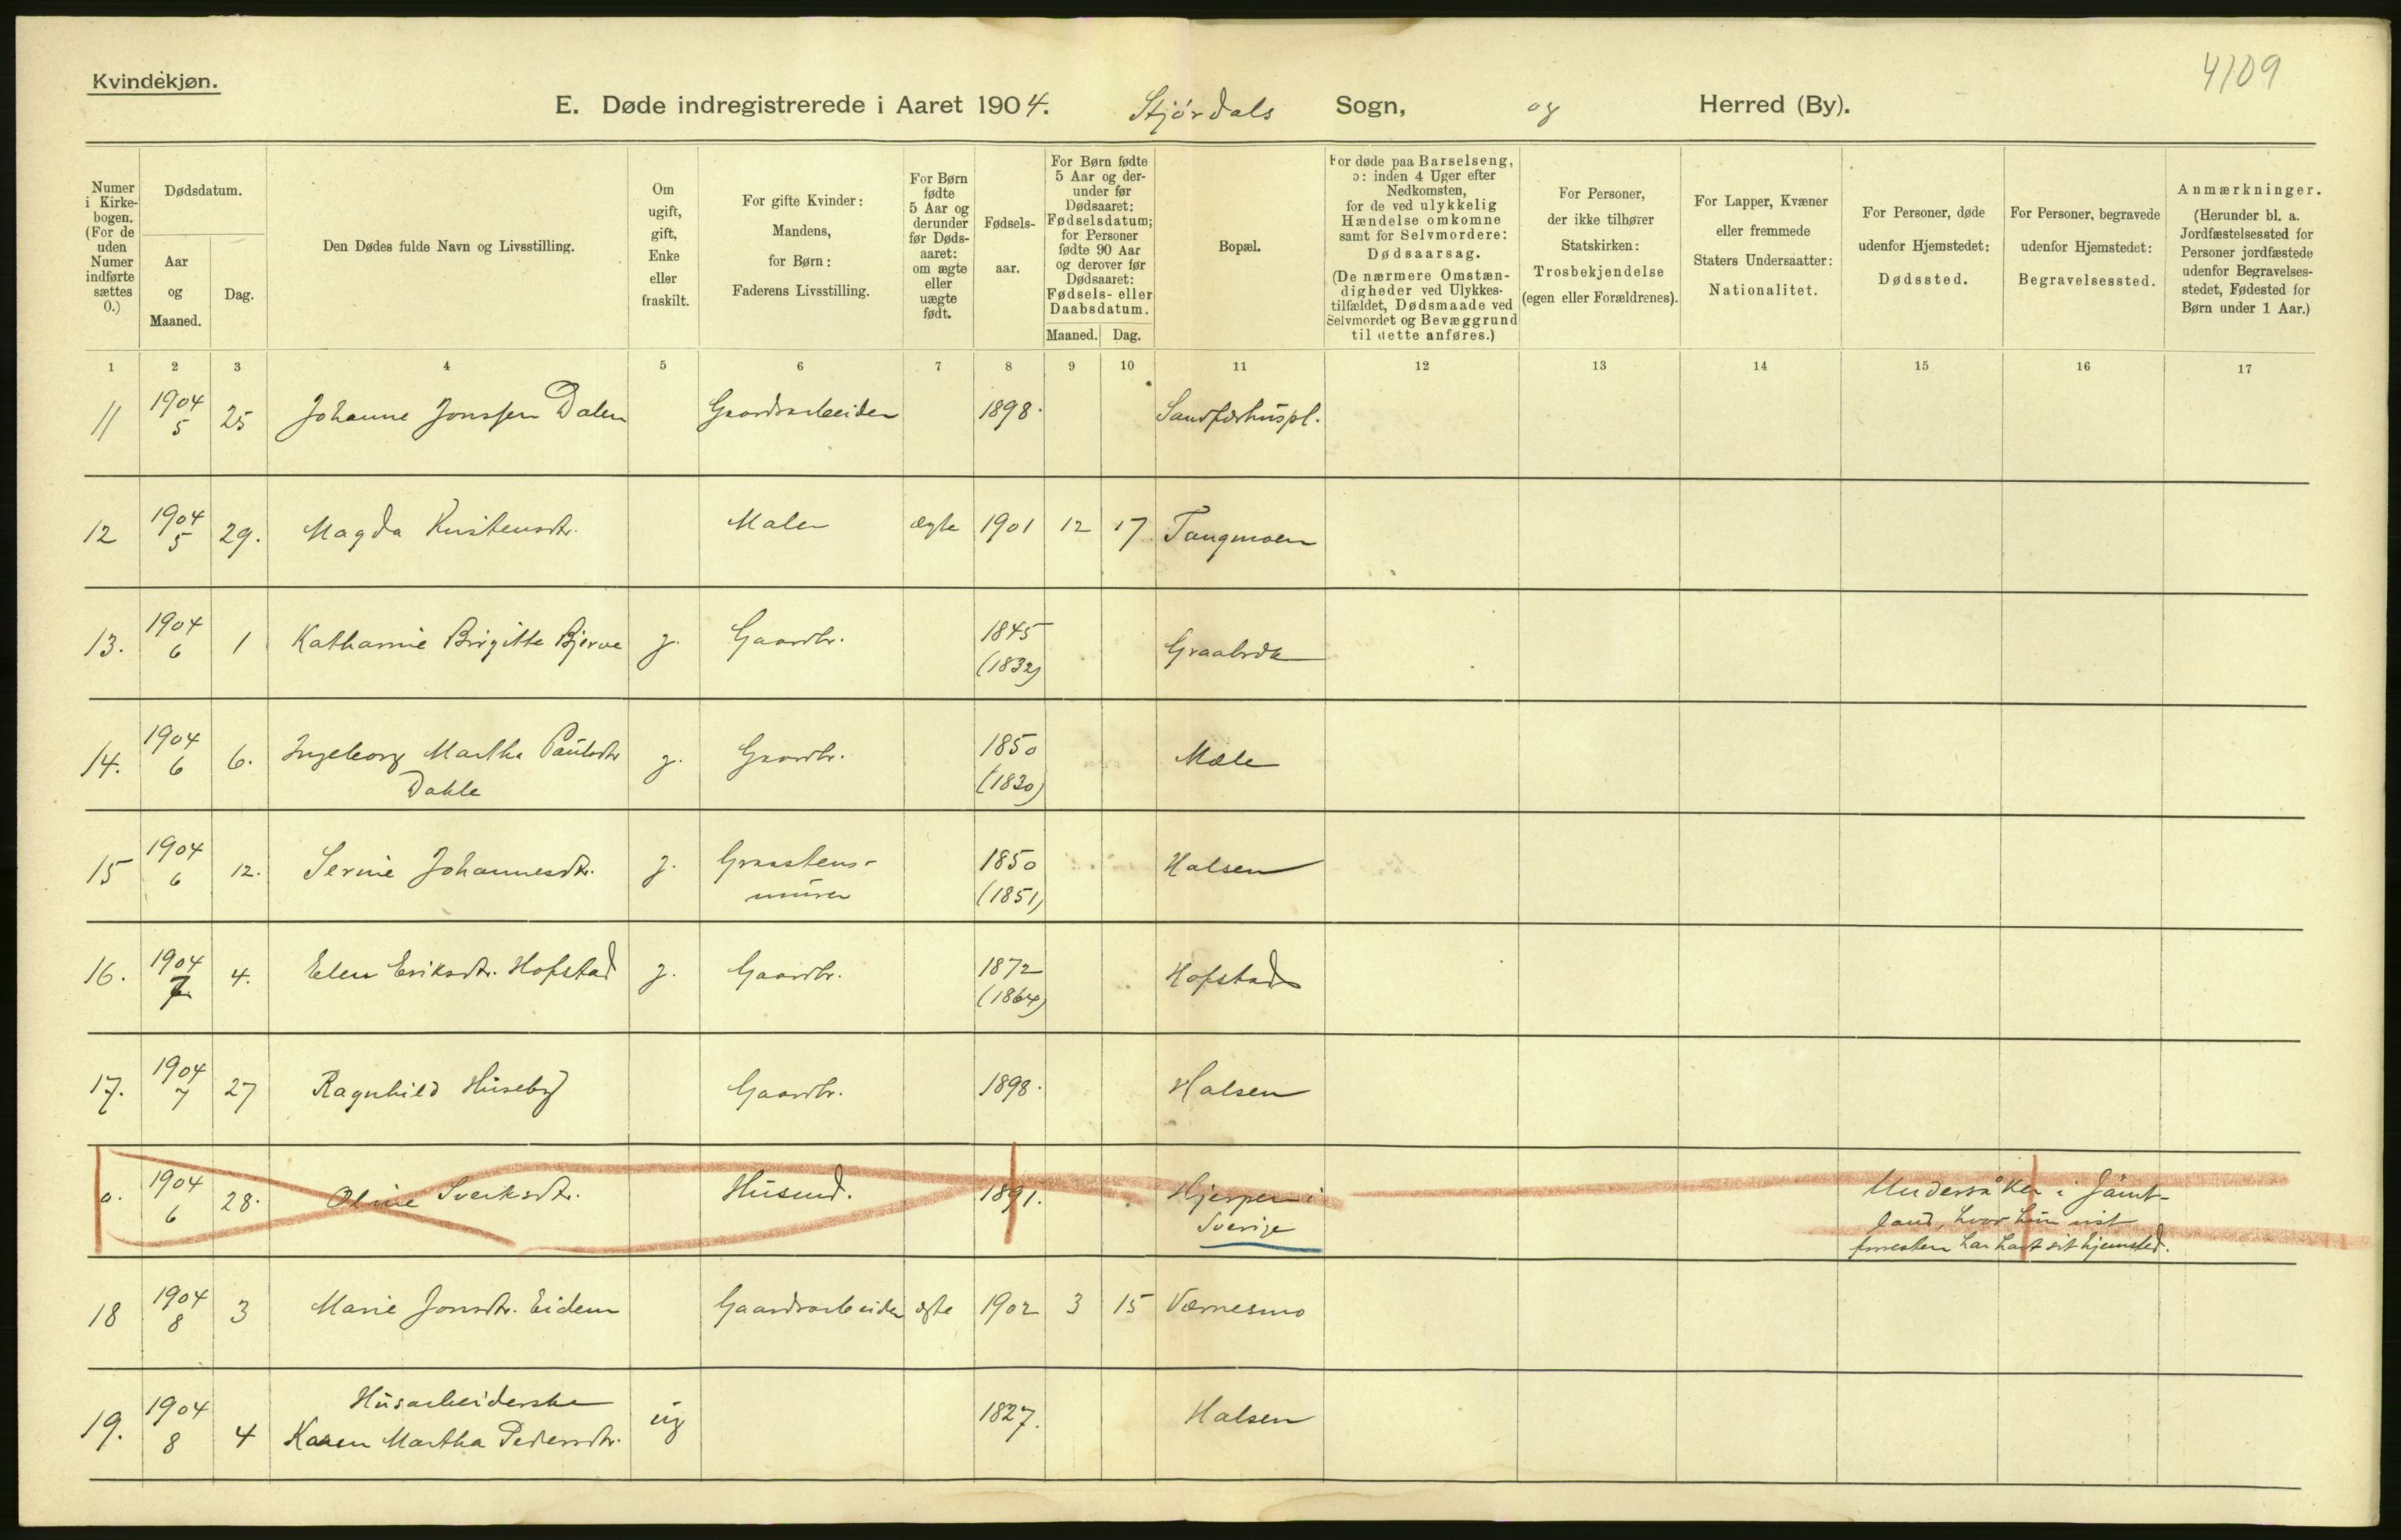 4109
Kvindekjøn.
E. Døde indregistrerede i Aaret 1904. Stjørdals Sogn, og Herred (By).
Numer i Kirke- bogen. (For de uden Numer indførte sættes 0.)
Dødsdatum.
Aar og Maaned.
Dag.
Den Dødes fulde Navn og Livsstilling.
Om ugift, gift, Enke eller fraskilt.
For gifte Kvinder: Mandens, for Børn: Faderens Livsstilling.
For Børn fødte 5 Aar og derunder før Døds- aaret: om ægte eller uægte født.
Fødsels- aar.
For Børn fødte 5 Aar og der- under før Dødsaaret: Fødselsdatum; for Personer fødte 90 Aar og derover før Dødsaaret: Fødsels- eller Daabsdatum.
Maaned. Dag.
Bopæl.
For døde paa Barselseng, ɔ: inden 4 Uger efter Nedkomsten, for de ved ulykkelig Hændelse omkomne samt for Selvmordere: Dødsaarsag. (De nærmere Omstæn- digheder ved Ulykkes- tilfældet, Dødsmaade ved Selvmordet og Bevæggrund til dette anføres.)
For Personer, der ikke tilhører Statskirken: Trosbekjendelse (egen eller Forældrenes).
For Lapper, Kvæner eller fremmede Staters Undersaatter: Nationalitet.
For Personer, døde udenfor Hjemstedet: Dødssted.
For Personer, begravede udenfor Hjemstedet: Begravelsessted.
Anmærkninger. (Herunder bl. a. Jordfæstelsessted for Personer jordfæstede udenfor Begravelses- stedet, Fødested for Børn under 1 Aar.)
1 2 3 4 5 6 7 8 9 10 11 12 13 14 15 16 17
11 1904 5 25 Johanne Jonssen Dalen Gaardsarbeider 1898.
12 1904 5 29. Magda Kristensdtr. Maler ægte 1901 12 17 Tangmoen
13. 1904 6 1 Katharine Birgitte Bjerve g. Gaardbr. 1845 (1832)
14. 1904 6 6. Ingeborg Martha Paulsdtr g. Gaardbr. 1850 (1830) Mæle
Dahle
15 1904 6 12. Serine Johannesdtr. g. Graastens- 1850 (1851) Halsen
murer
16. 1904 7 4. Elen Eriksdtr. Hofstad g. Gaardbr. 1872 (1864) Hofstad
17. 1904 7 27 Ragnhild Huseby Gaardbr. 1898. Halsen
0. 1904 6 28. Oline Husmd. 1891. Hjerpen i Undersåker i Jämt-
Sverige land, hvor hun
forresten har havt sit hjemsted.
18 1904 8 3 Marie Jonsdtr. Eidem Gaardsarbeider ægte 1902 3 15 Værnesmo
Husarbeiderske
19. 1904 8 4 Karen Martha Pedersdtr. ug 1827. Halsen